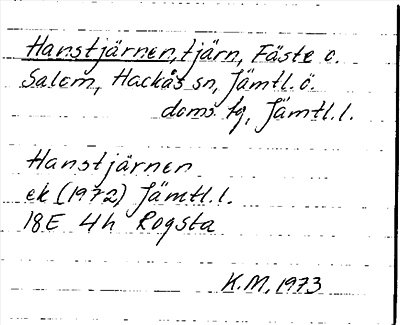 Hanstjärnen, tjärn, Fäste o.
Salem, Hackås sn, Jämtl. ö.
doms. tg, Jämtl. l.
Hanstjärnen
ek (1972) Jämtl. l.
18E 4h Rogsta
K.M. 1973